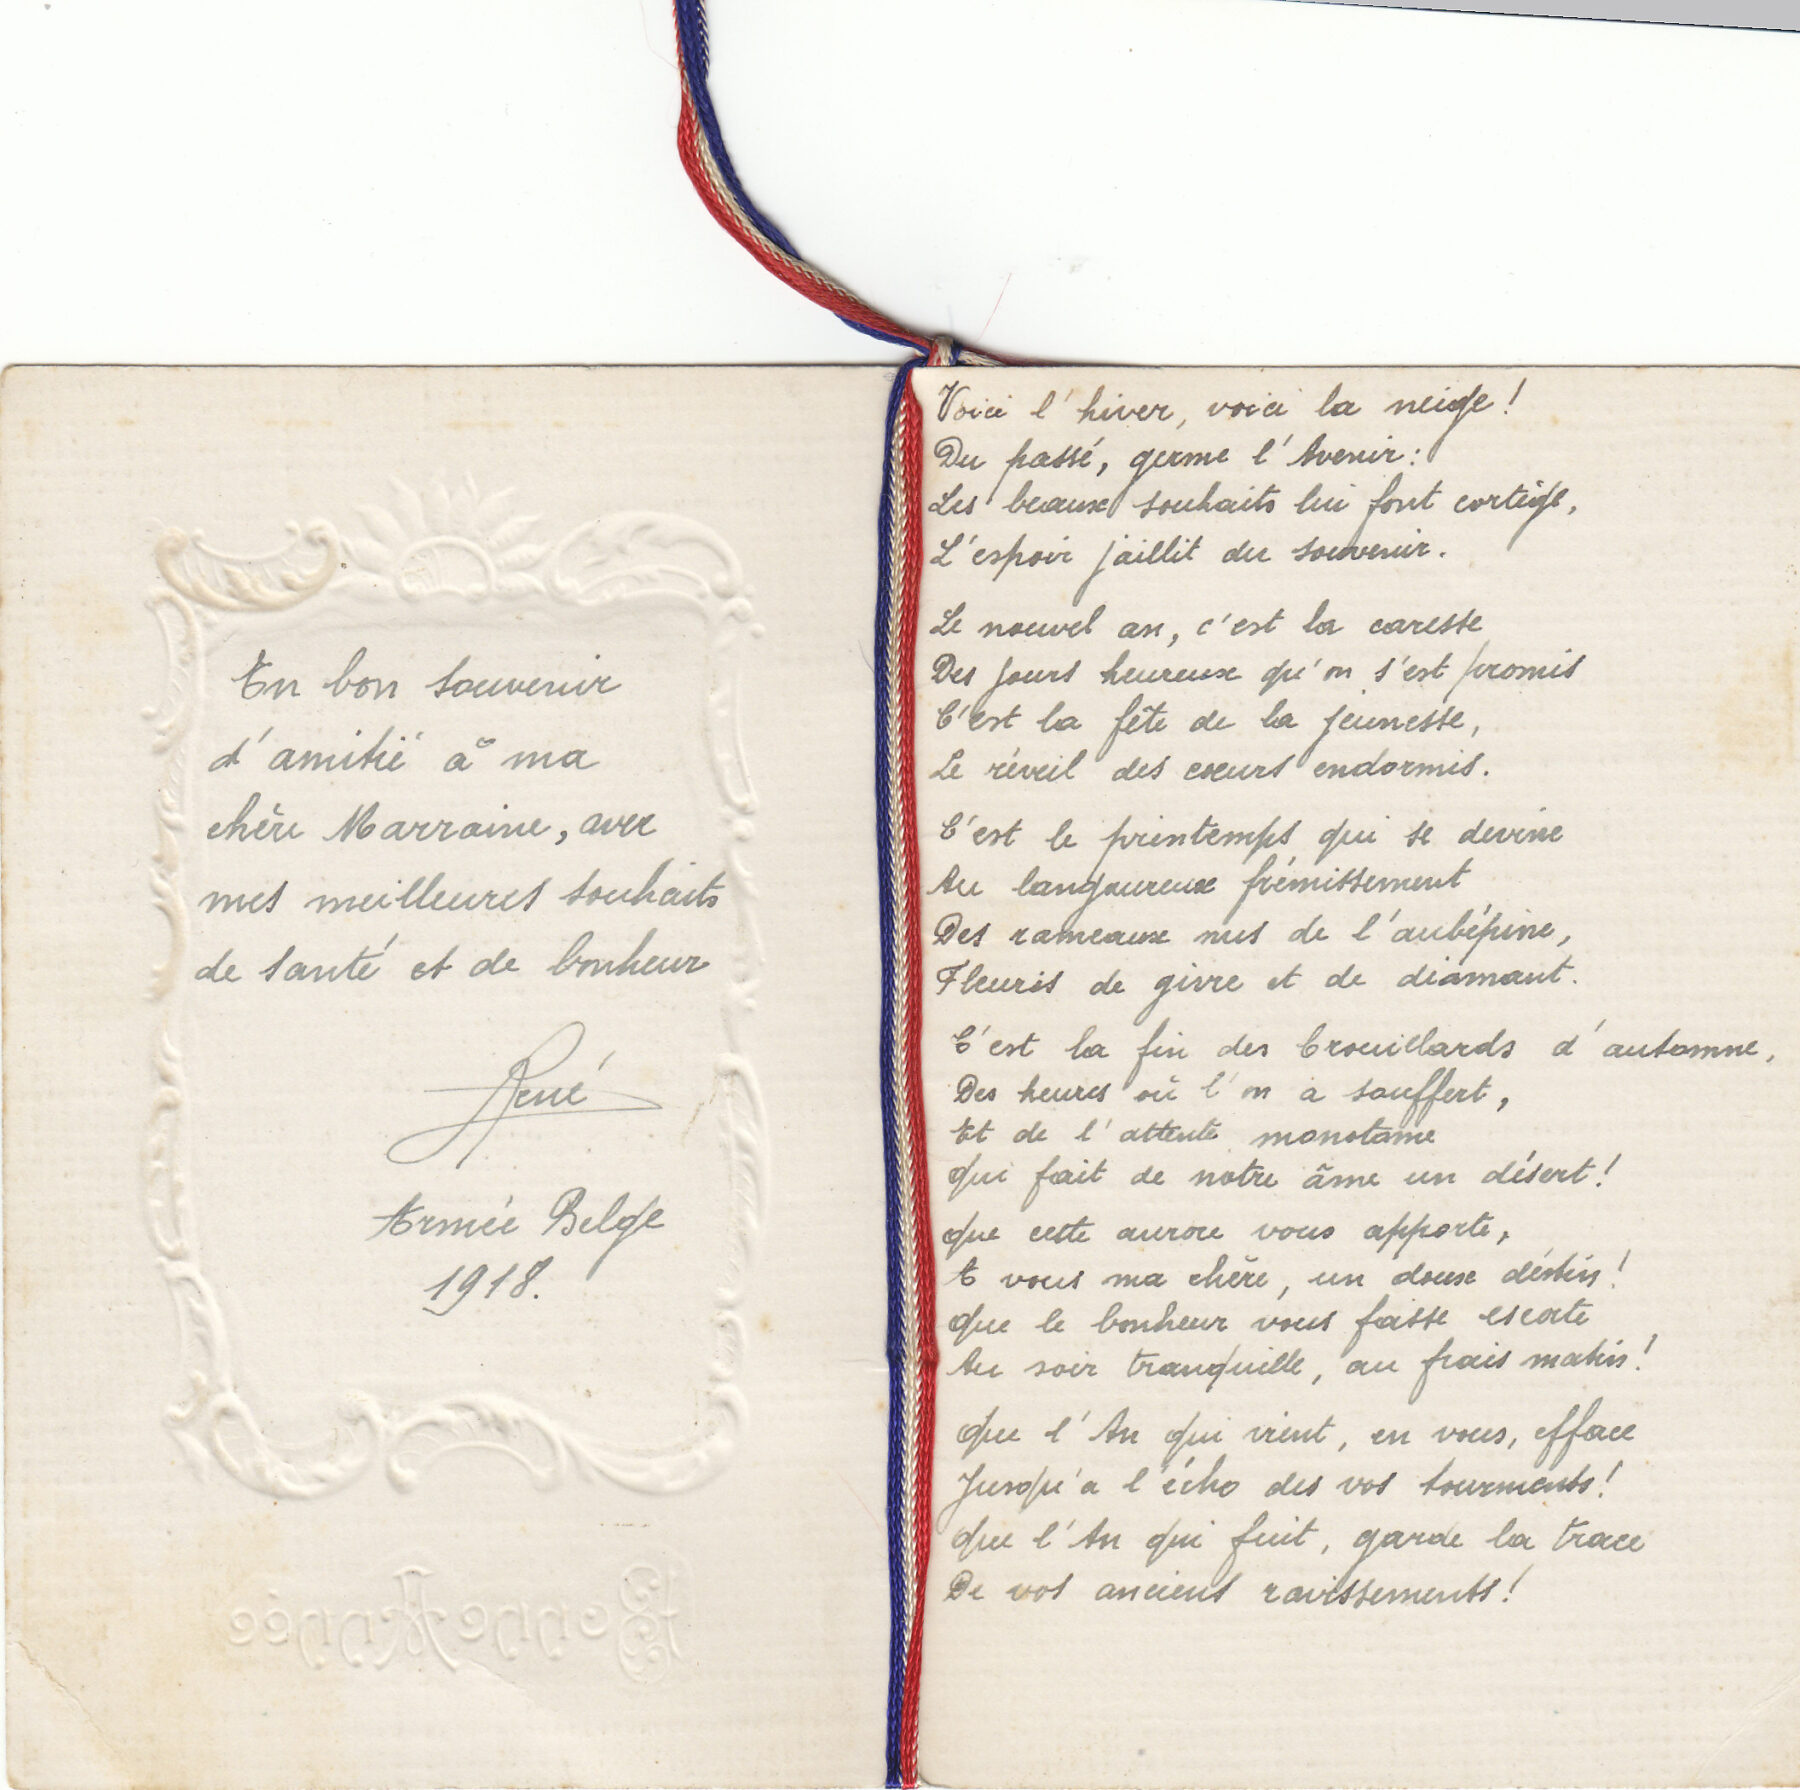 En bon souvenir
d'amitié à ma
chère Marraine, avec
mes meilleures souhaits
de santé et de bonheur
René
Armée Belge
1918.
Bonne Année
Voici l'hiver, voici la neige!
Du passé, germe l'Avenir:
Les beaux souhaits lui font cortège,
L'espoir jaillit du souvenir.
Le nouvel an, c'est la caresse
Des jours heureux qu'on s'est promis
C'est la fête de la jeunesse,
Le réveil des cœurs endormis.
C'est le printemps qui se devine
Au langoureux frémissement
Des rameaux nus de l'aubépine,
Fleuris de givre et de diamant.
C'est la fin des brouillards d'automne,
Des heures où l'on a souffert,
Et de l'attente monotame
Qui fait de notre âme un désert!
Que cette aurore vous apporte,
A vous ma chère, un doux déstin!
Que le bonheur vous fasse escorte
Au soir tranquille, au frais matin!
Que l'An qui vient, en vous, efface
Jusqu'a l'écho des vos tourments!
Que l'An qui fuit, garde la trace
De vos anciens ravissements!